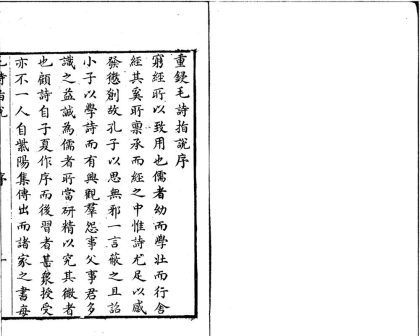 重鋟毛詩指說序
窮經所以致用也儒者幼而學壯而行舍
經其奚所稟承而經之中惟詩尤足以感
發懲創故孔子以思無邪一言蔽之且詔
小子以學詩而有興觀羣怨事父事君多
識之益誠為儒者所當研精以究其微者
也顧詩自子夏作序而後習者甚衆授受
亦不一人自紫陽集傳出而諸家之書每
毛詩指說 序 一